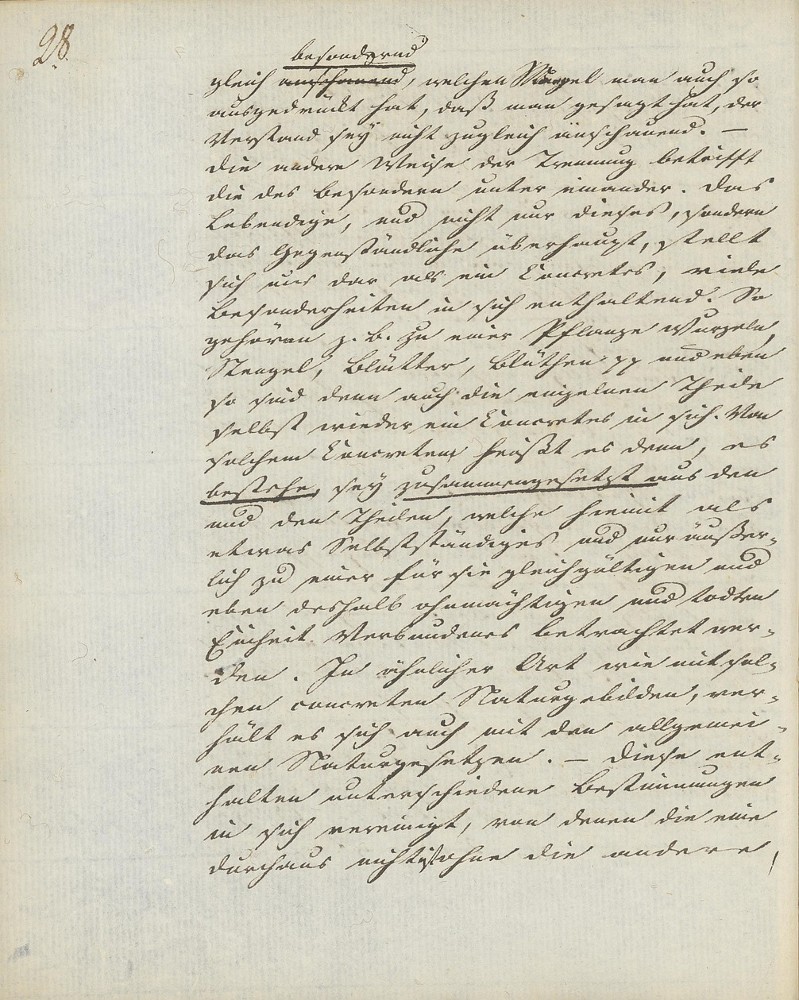 28.
besondernd
gleich anschauend, welchen Mangel man auch so
ausgedrückt hat, daß man gesagt hat, der
Verstand sey nicht zugleich anschauend. —
Die andere Weise der Trennung betrifft
die des Besondern unter einander. Das
Lebendige, und nicht nur dieses, sondern
das Gegenständliche überhaupt, stellt
sich uns dar als ein Concretes, viele
Besonderheiten in sich enthaltend. So
gehören z. B. zu einer Pflanze Wurzeln,
Stengel, Blätter, Blüthen pp und eben
so sind denn auch die einzelnen Theile
selbst wieder ein Concretes in sich. Von
solchem Concretem heißt es denn, es
bestehe, sey zusammengesetzt aus den
und den Theilen, welche hiemit als
etwas Selbstständiges und nur äußer-
lich zu einer für sie gleichgültigen und
eben deshalb ohnmächtigen und todten
Einheit Verbundenes betrachtet wer-
den. In ähnlicher Art wie mit sol-
chen concreten Naturgebilden, ver-
hält es sich auch mit den allgemei-
nen Naturgesetzen. — Diese ent-
halten unterschiedene Bestimmungen
in sich vereinigt, von denen die eine
durchaus nicht ist ohne die andere,